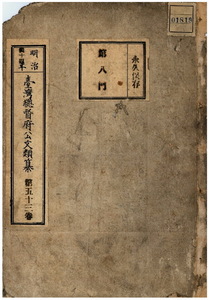 01818
永久保存
第八門
明治
臺灣總督府公文類纂
第五十三卷